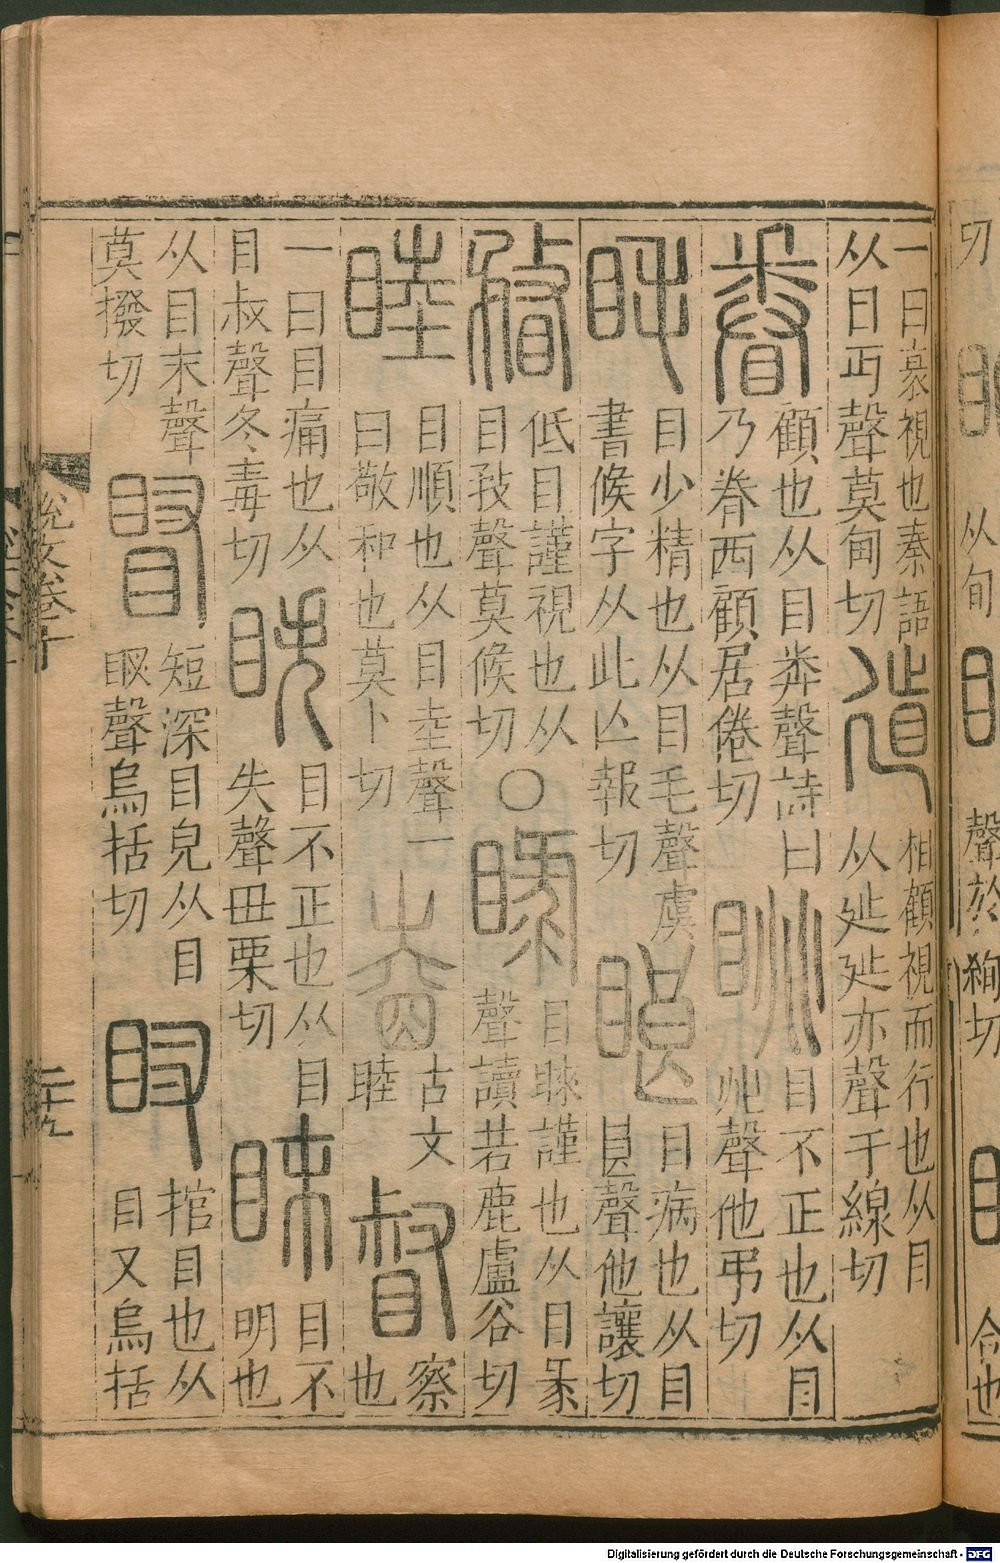 切 从旬 聲於絢切 合也
一曰衺視也秦語
从目丏聲莫甸切
相顧視而行也从目
从㢟㢟亦聲于線切
眷
顧也从目𢍏聲詩曰
乃眷西顧居倦切
眺
目不正也从目
兆聲他弔切
眊
目少精也从目毛聲虞
書候字从此亡報切
目病也从目
良聲他讓切
瞀
低目謹視也从
目敄聲莫候切
○
睩
目睞謹也从目彔
聲讀若鹿盧谷切
睦
目順也从目坴聲一
曰敬和也莫卜切
古文
睦
督
察
也
一曰目痛也从
目叔聲冬毒切
眣
目不正也从目
失聲丑栗切
眜
目不
明也
从目末聲
莫撥切
短深目皃从目
𥄗聲烏括切
𥄗
捾目也从
目又烏括
說文卷十
二十九
Digitalisierung gefördert durch die Deutsche Forschungsgemeinschaft - DFG